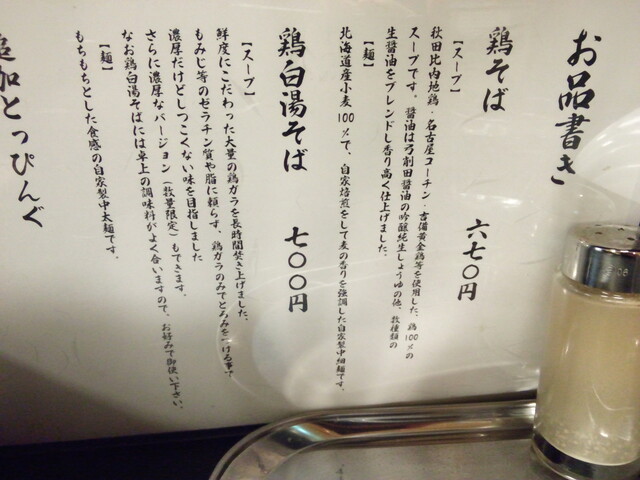 お品書き
鶏そば 六七〇円
【スープ】
秋田比内地鶏・名古屋コーチン・吉備黄金鶏等を使用した、鶏100%の
スープです。醤油は弓削田醤油の吟醸純生しょうゆの他、数種類の
生醤油をブレンドし香り高く仕上げました。
【麺】
北海道産小麦100%で、自家焙煎をして麦の香りを強調した自家製中細麺です。
鶏白湯そば 七〇〇円
【スープ】
鮮度にこだわった大量の鶏ガラを長時間焚き上げました。
もみじ等のゼラチン質や脂に頼らず、鶏ガラのみでとろみをつける事で
濃厚だけどしつこくない味を目指しました
さらに濃厚なバージョン(数量限定)もできます。
なお鶏白湯そばには卓上の調味料がよく合いますので、お好みで御使い下さい。
【麺】
もちもちとした食感の自家製中太麺です。
追加とっぴんぐ